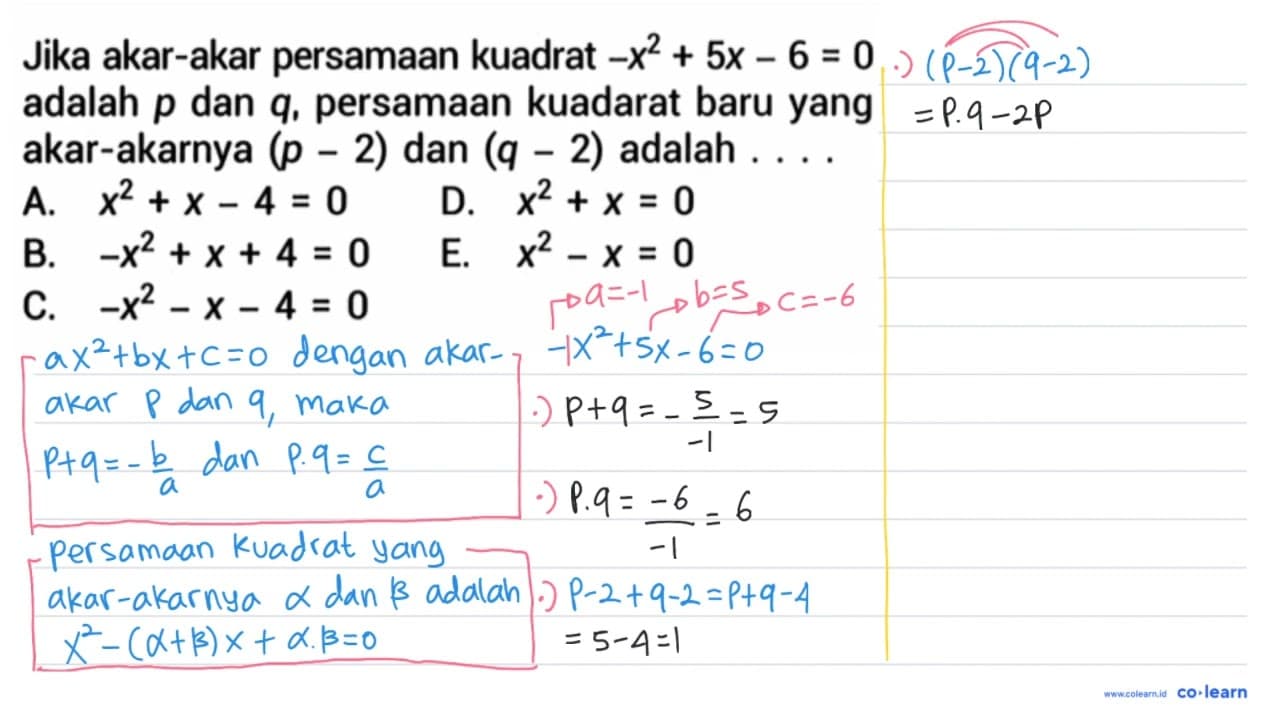 Jika akar-akar persamaan kuadrat –x² + 5x – 6 = 0
adalah p dan q, persamaan kuadarat baru yang
akar-akarnya (p – 2) dan (q – 2) adalah . . . .
A. x² + x – 4 = 0 D. x² + x = 0
B. –x² + x + 4 = 0 E. x² – x = 0
C. –x² – x – 4 = 0
ax²+bx+c=0 dengan akar-
akar p dan q, maka
p+q=-b/a dan p.q=c/a
persamaan kuadrat yang
akar-akarnya α dan β adalah
x²-(α+β)x+α.β=0
a=-1 b=5 c=-6
-1x²+5x-6=0
.) p+q=-5/-1=5
.) p.q=-6/-1=6
.) p-2+q-2=p+q-4
=5-4=1
.) (p-2)(q-2)
=p.q-2p
www.colearn.id co·learn